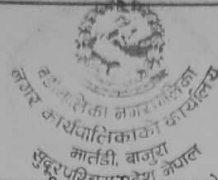 नगरपालिका
नगर कार्यपालिकाको कार्यालय
मार्तडी, बाजुरा
सुदूरपश्चिम प्रदेश नेपाल